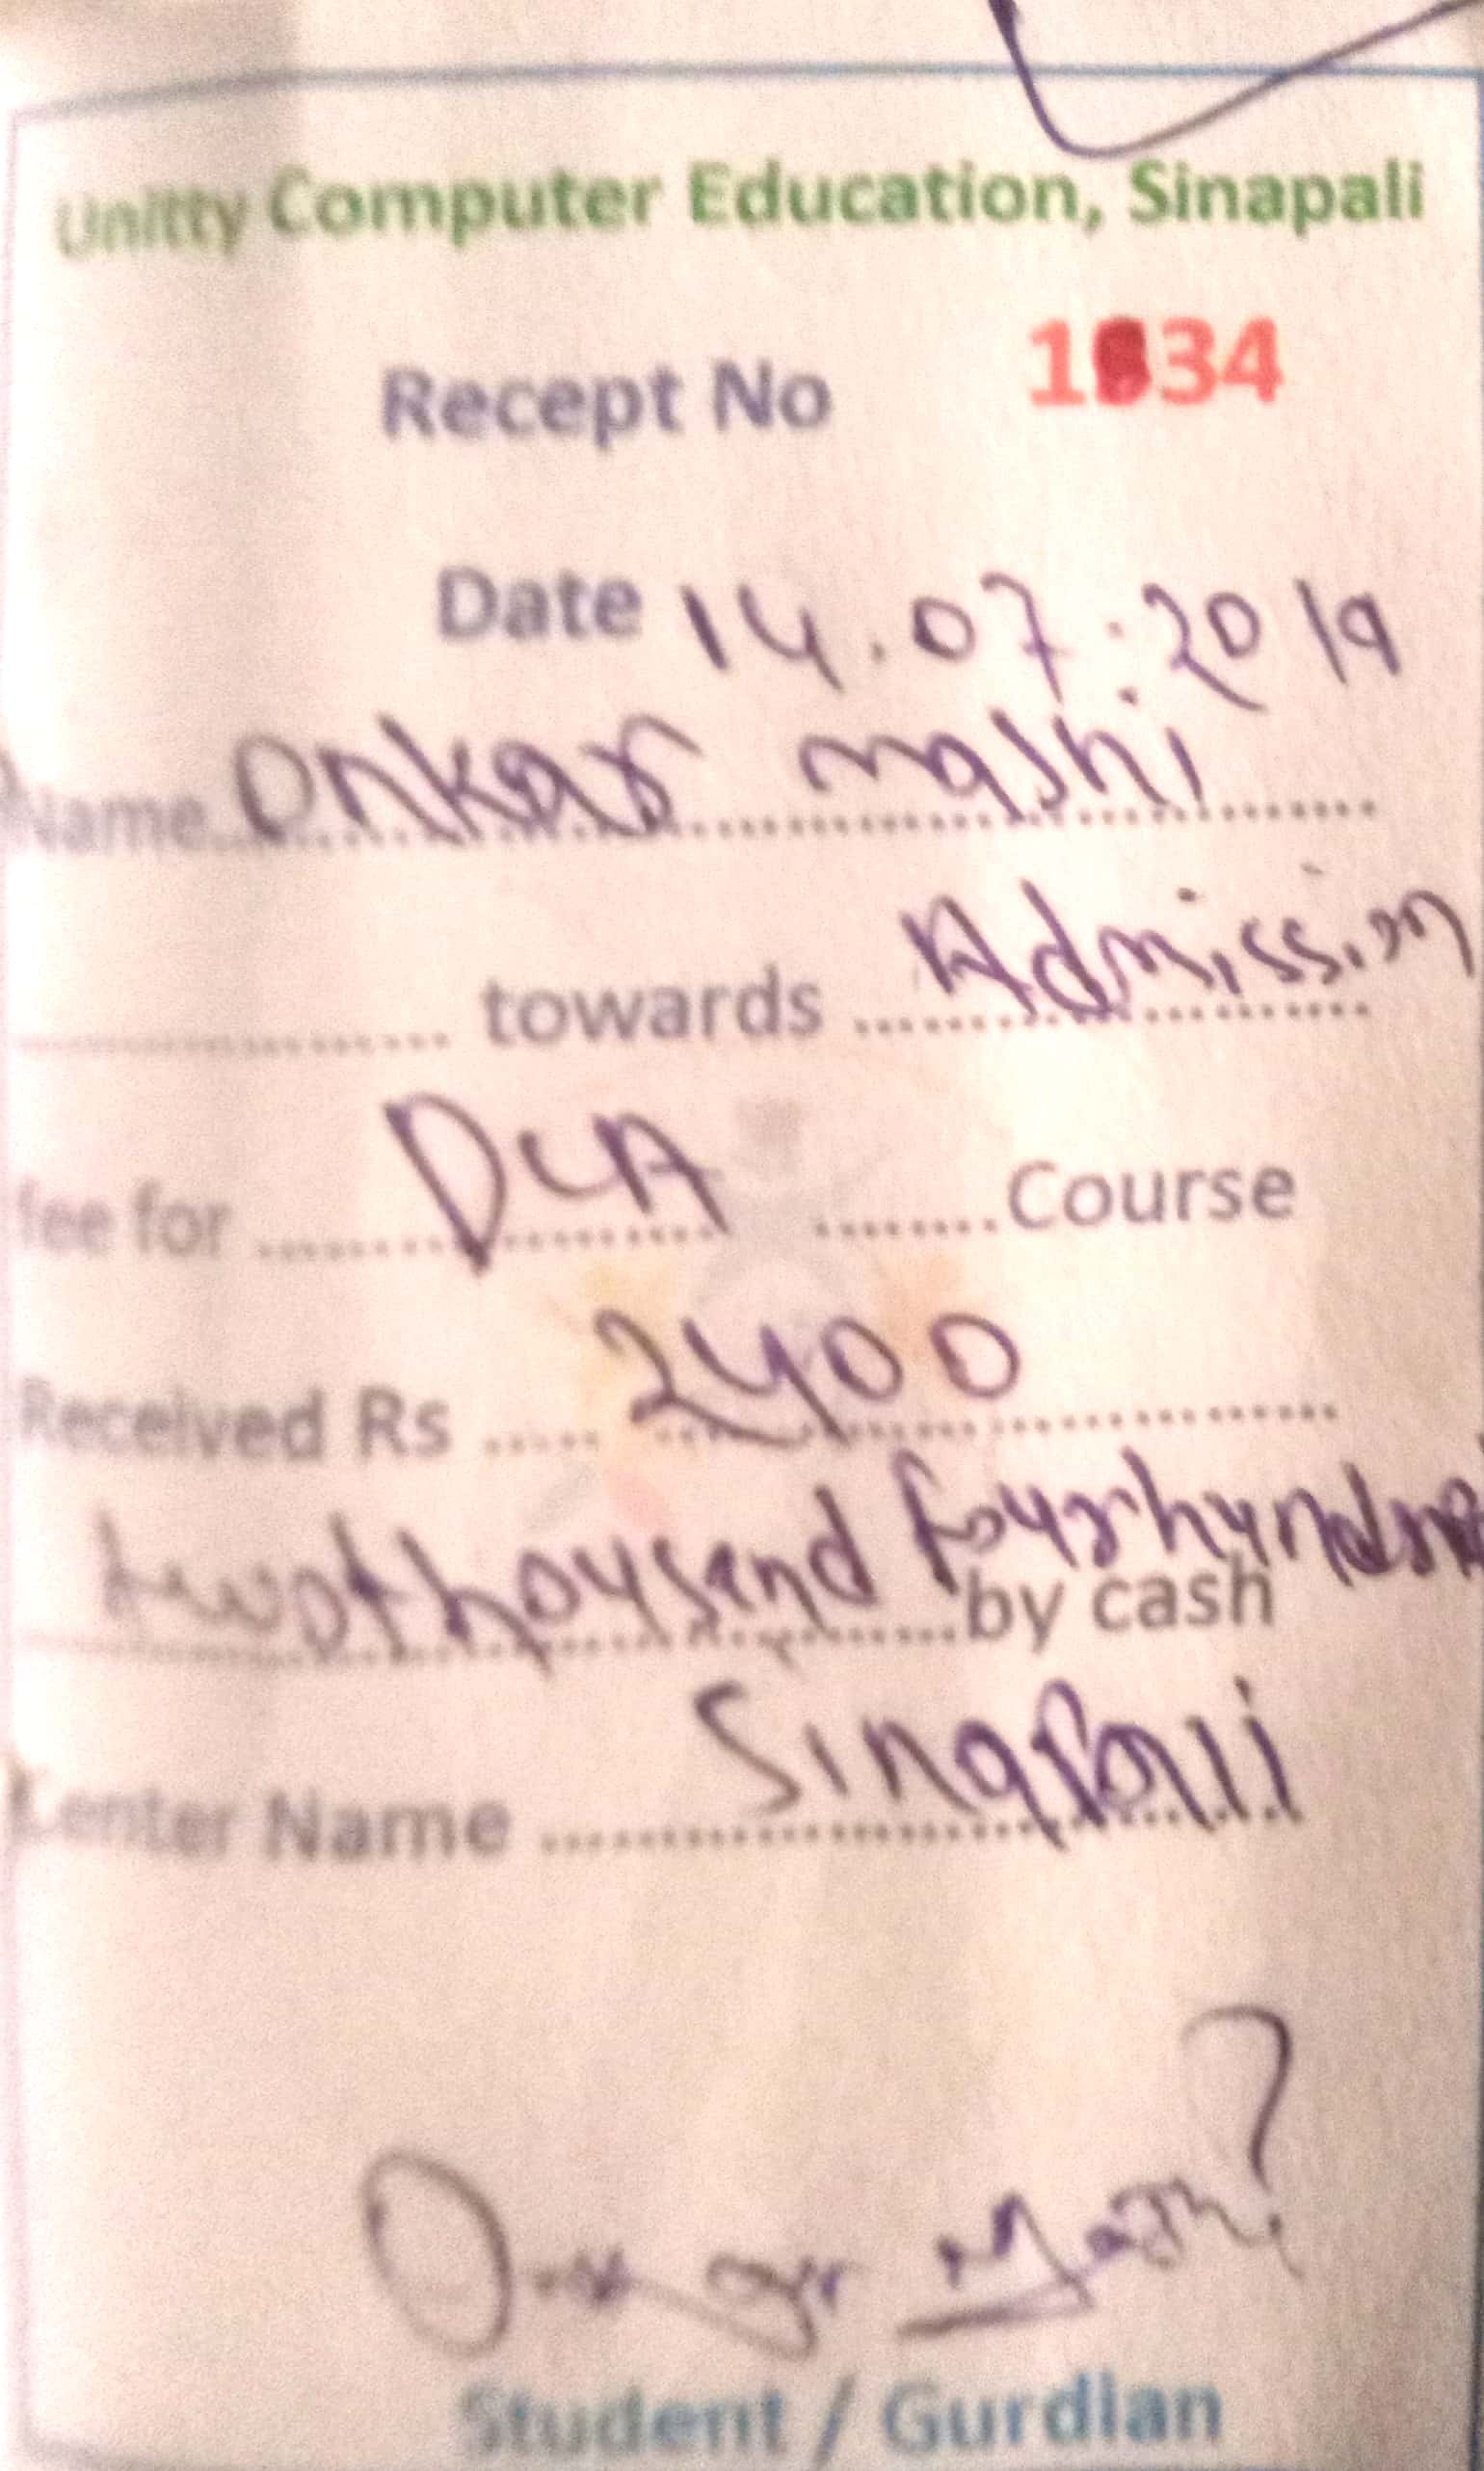 Unitty Computer Education, Sinapali
Recept No
Date 14.07.2019
Name Onkar mashi
towards Admission
fee for DCA Course
Received Rs 2400
twothousand fourhundre
by cash
Center Name Sinapali
Onkar Mashi
Student / Gurdian